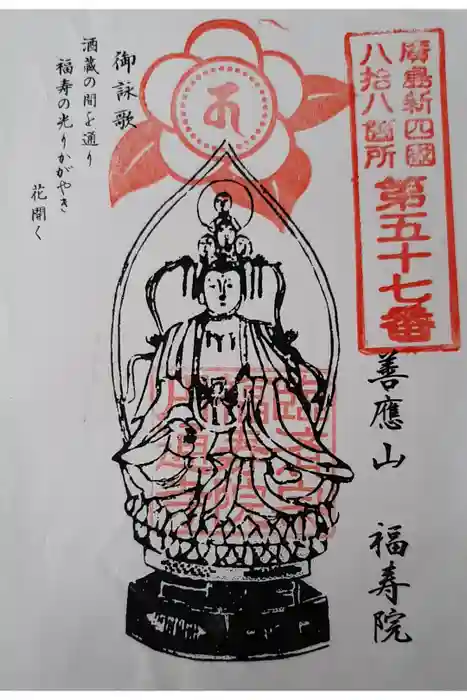 廣島新四國
八拾八箇所
第五十七番
善應山 福寿院
御詠歌
酒蔵の間を通り
福寿の光りかがやき
花開く